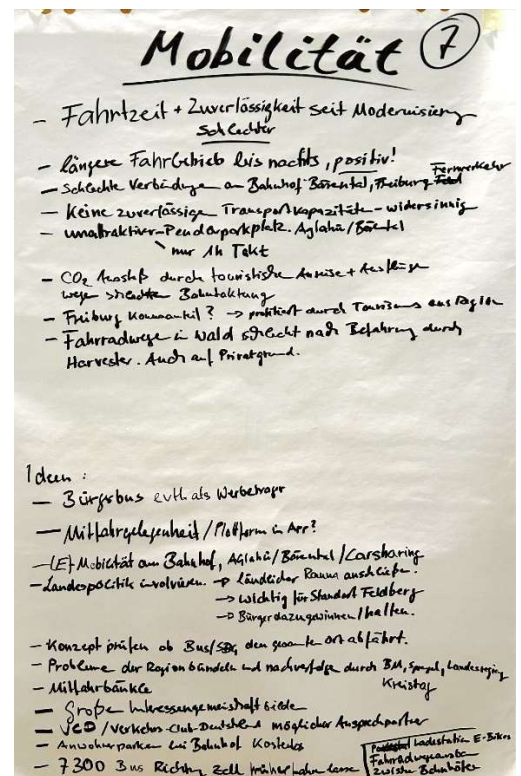 Mobilität 7
- Fahrtzeit + Zuverlässigkeit seit Modernisierung
schlechter
- längere Fahrbetrieb bis nachts, positiv!
- Schlechte Verbindungen am Bahnhof Bärental, Freiburg Fernverkehr
- Keine zuverlässigen Transportkapazitäten - widersinnig
- unattraktiver Pendlerparkplatz. Aglahü/Bärental
nur 1h Takt
- CO2 Ausstoß durch touristische Anreise + Ausflüge
wegen schlechter Bahntaktung
- Freiburg Konusanteil? → profitiert durch Tourismus aus Region
- Fahrradwege in Wald schlecht nach Befahrung durch
Harvester. Auch auf Privatgrund.
Ideen:
- Bürgerbus evtl. als Werbeträger
- Mitfahrgelegenheit/Plattform in App?
- (E) Mobilität am Bahnhof, Aglahü/Bärental/Carsharing
- Landespolitik involvieren. → ländlicher Raum anschließen.
→ wichtig für Standort Feldberg
→ Bürger dazugewinnen/halten.
- Konzept prüfen ob Bus/ den gesamten Ort abfährt.
- Probleme der Region bündeln und nachverfolgen durch BM, Landesregierung
Kreistag
- Mitfahrbänkle
- Große Interessengemeinschaft bilden
- VCD/Verkehrs-Club-Deutschland möglicher Ansprechpartner
- Anwohnerparken bei Bahnhof kostenlos
- 7300 Bus Richtung Zell früher fahren lassen
Ladestation E-Bikes
Fahrrad
zwischen Bahnhöfen